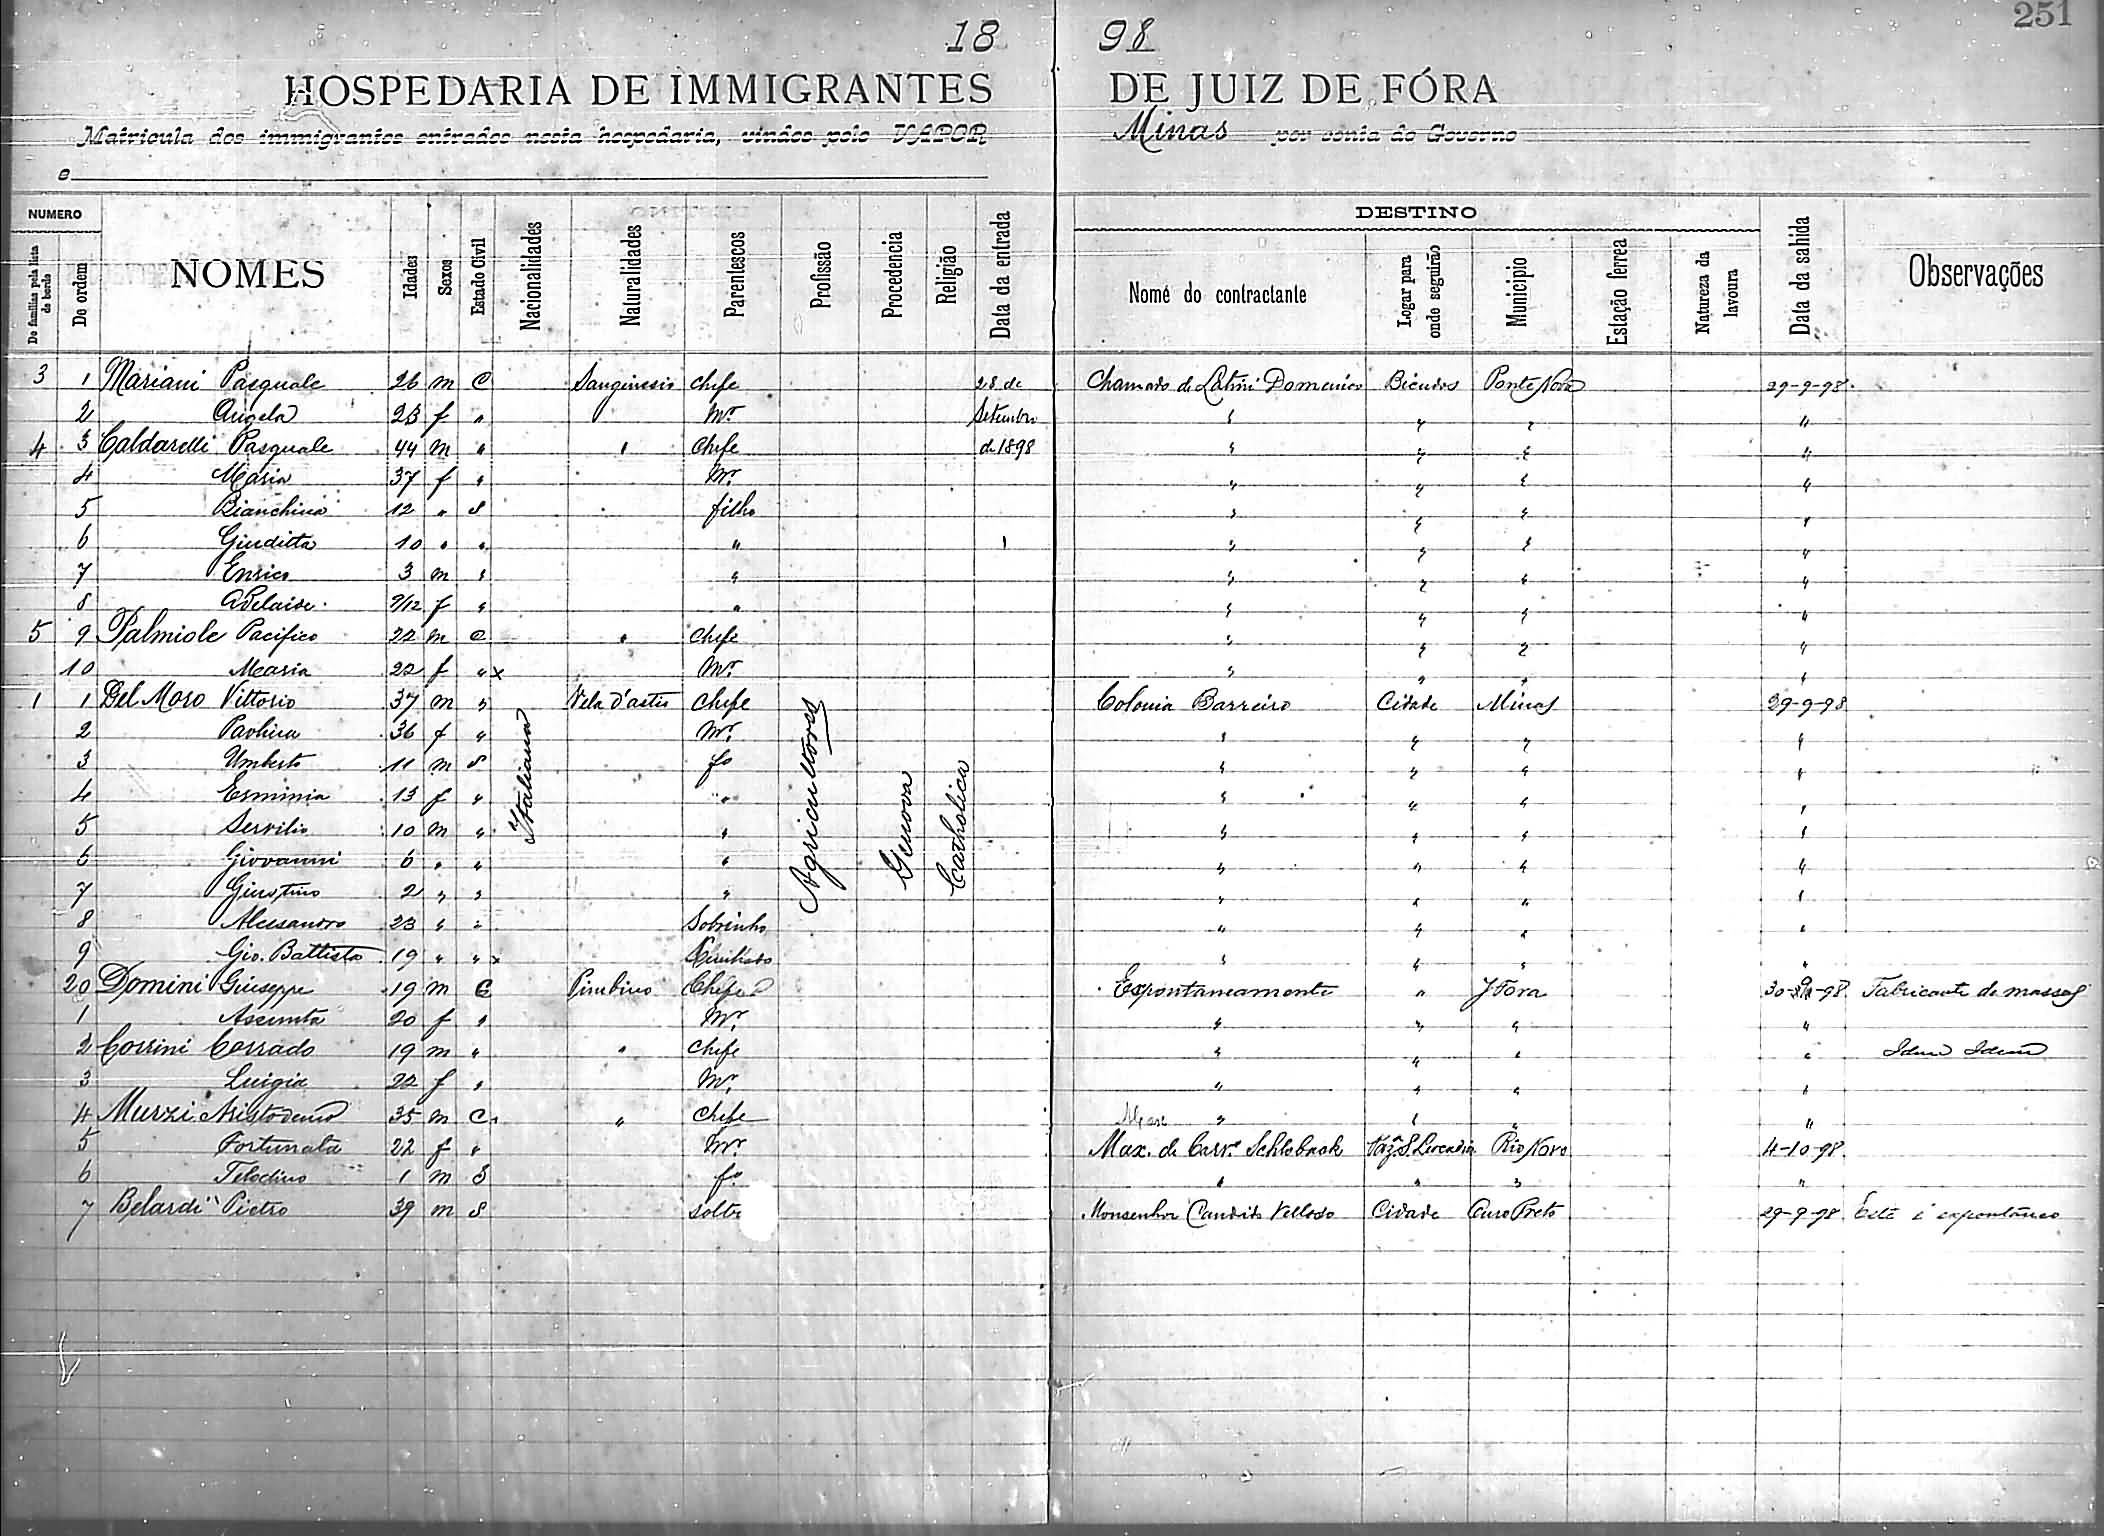 251
18 98
HOSPEDARIA DE IMMIGRANTES DE JUIZ DE FÓRA
Matricula dos immigrantes entrados nesta hospedaria, vindos pelo VAPOR Minas por conta do Governo
e
NUMERO DESTINO
De familias pela lista de bordo De ordem NOMES Idades Sexos Estado Civil Nacionalidades Naturalidades Parentescos Profissão Procedencia Religião Data da entrada Nome do contractante Logar para onde seguirão Municipio Estação ferrea Natureza da lavoura Data da sahida Observações
3 1 Mariani Pasquale 26 m C Sanginesio chefe 28 de Chamado de Latini Domenico Bicudos Ponte Nova 29-9-98
2 Angela 23 f " Mr. Setembro " " " "
4 3 Caldarelli Pasquale 44 m " " Chefe de 1898 " " " "
4 Maria 37 f " Mr. " " " "
5 Bianchina 12 " S filho " " " "
6 Giuditta 10 " " " " " " "
7 Enrico 3 m " " " " " "
8 Adelaide 9/12 f " " " " " "
5 9 Palmiole Pacifico 22 m C " Chefe " " " "
10 Maria 22 f " x Mr. " " " "
1 1 Del Moro Vittorio 37 m " Vila d'astis Chefe Colonia Barreiro Cidade Minas 29-9-98
2 Paolina 36 f " Mr. " " " "
3 Umberto 11 m S fo " " " "
4 Erminia 13 f " " " " " "
5 Servilio 10 m " " " " " "
6 Giovanni 6 " " " " " " "
7 Giustino 2 " " " " " " "
8 Alessandro 23 " " Sobrinho " " " "
9 Gio. Battista 19 " " x Cunhado " " " "
Italiana Agricultores Genova Catholica
20 Domini Giuseppe 19 m C Piombino Chefe Expontaneamente " J Fora 30-9-98 Fabricante de massas
1 Assunta 20 f " Mr. " " " "
2 Corrini Corrado 19 m " " Chefe " " " " Idem Idem
3 Luigia 22 f " Mr. " " " "
4 Murzi Aristodemo 35 m C " Chefe " " " "
5 Fortunata 22 f " Mr. Max. de Carv.º Schlobach Faz.ª S. Leocadia Rio Novo 4-10-98
6 1 m S fo " " " "
7 Belardi Pietro 39 m S Monsenhor Candido Velloso Cidade Ouro Preto 29-9-98 Este é expontaneo